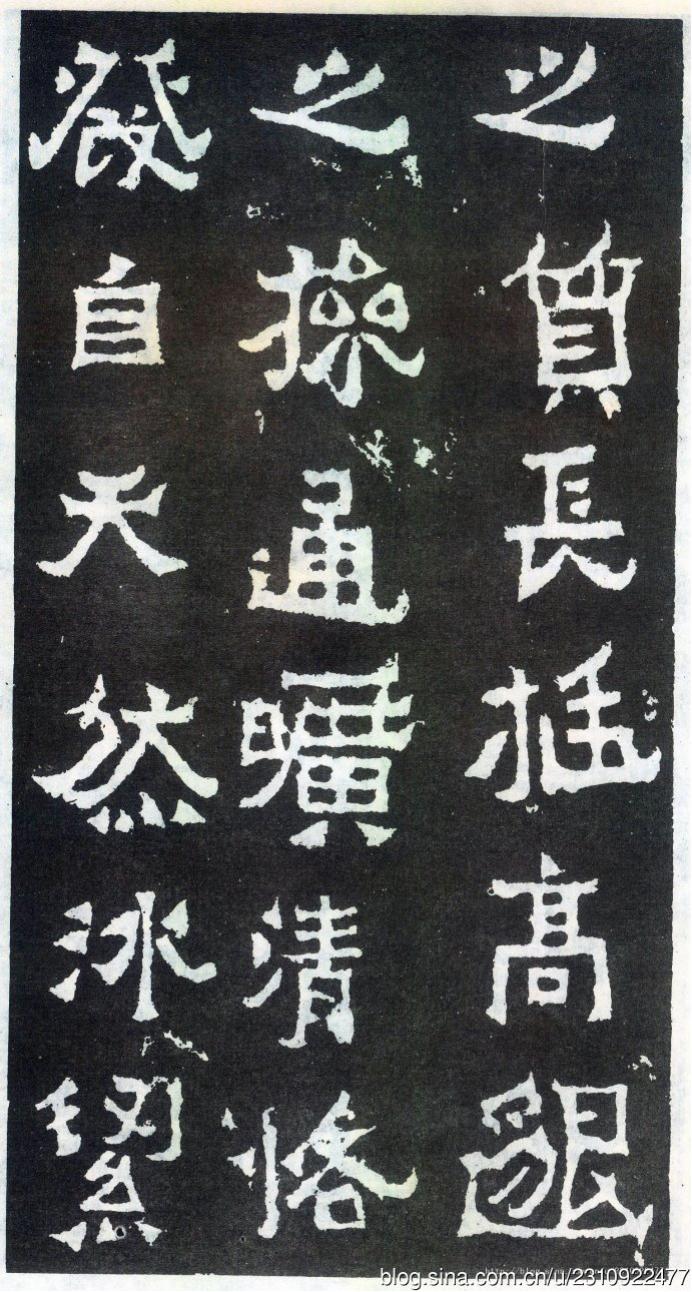 之質長挺高邈
之操通曠清恪
發自天然冰絜
blog.sina.com.cn/u/2310922477